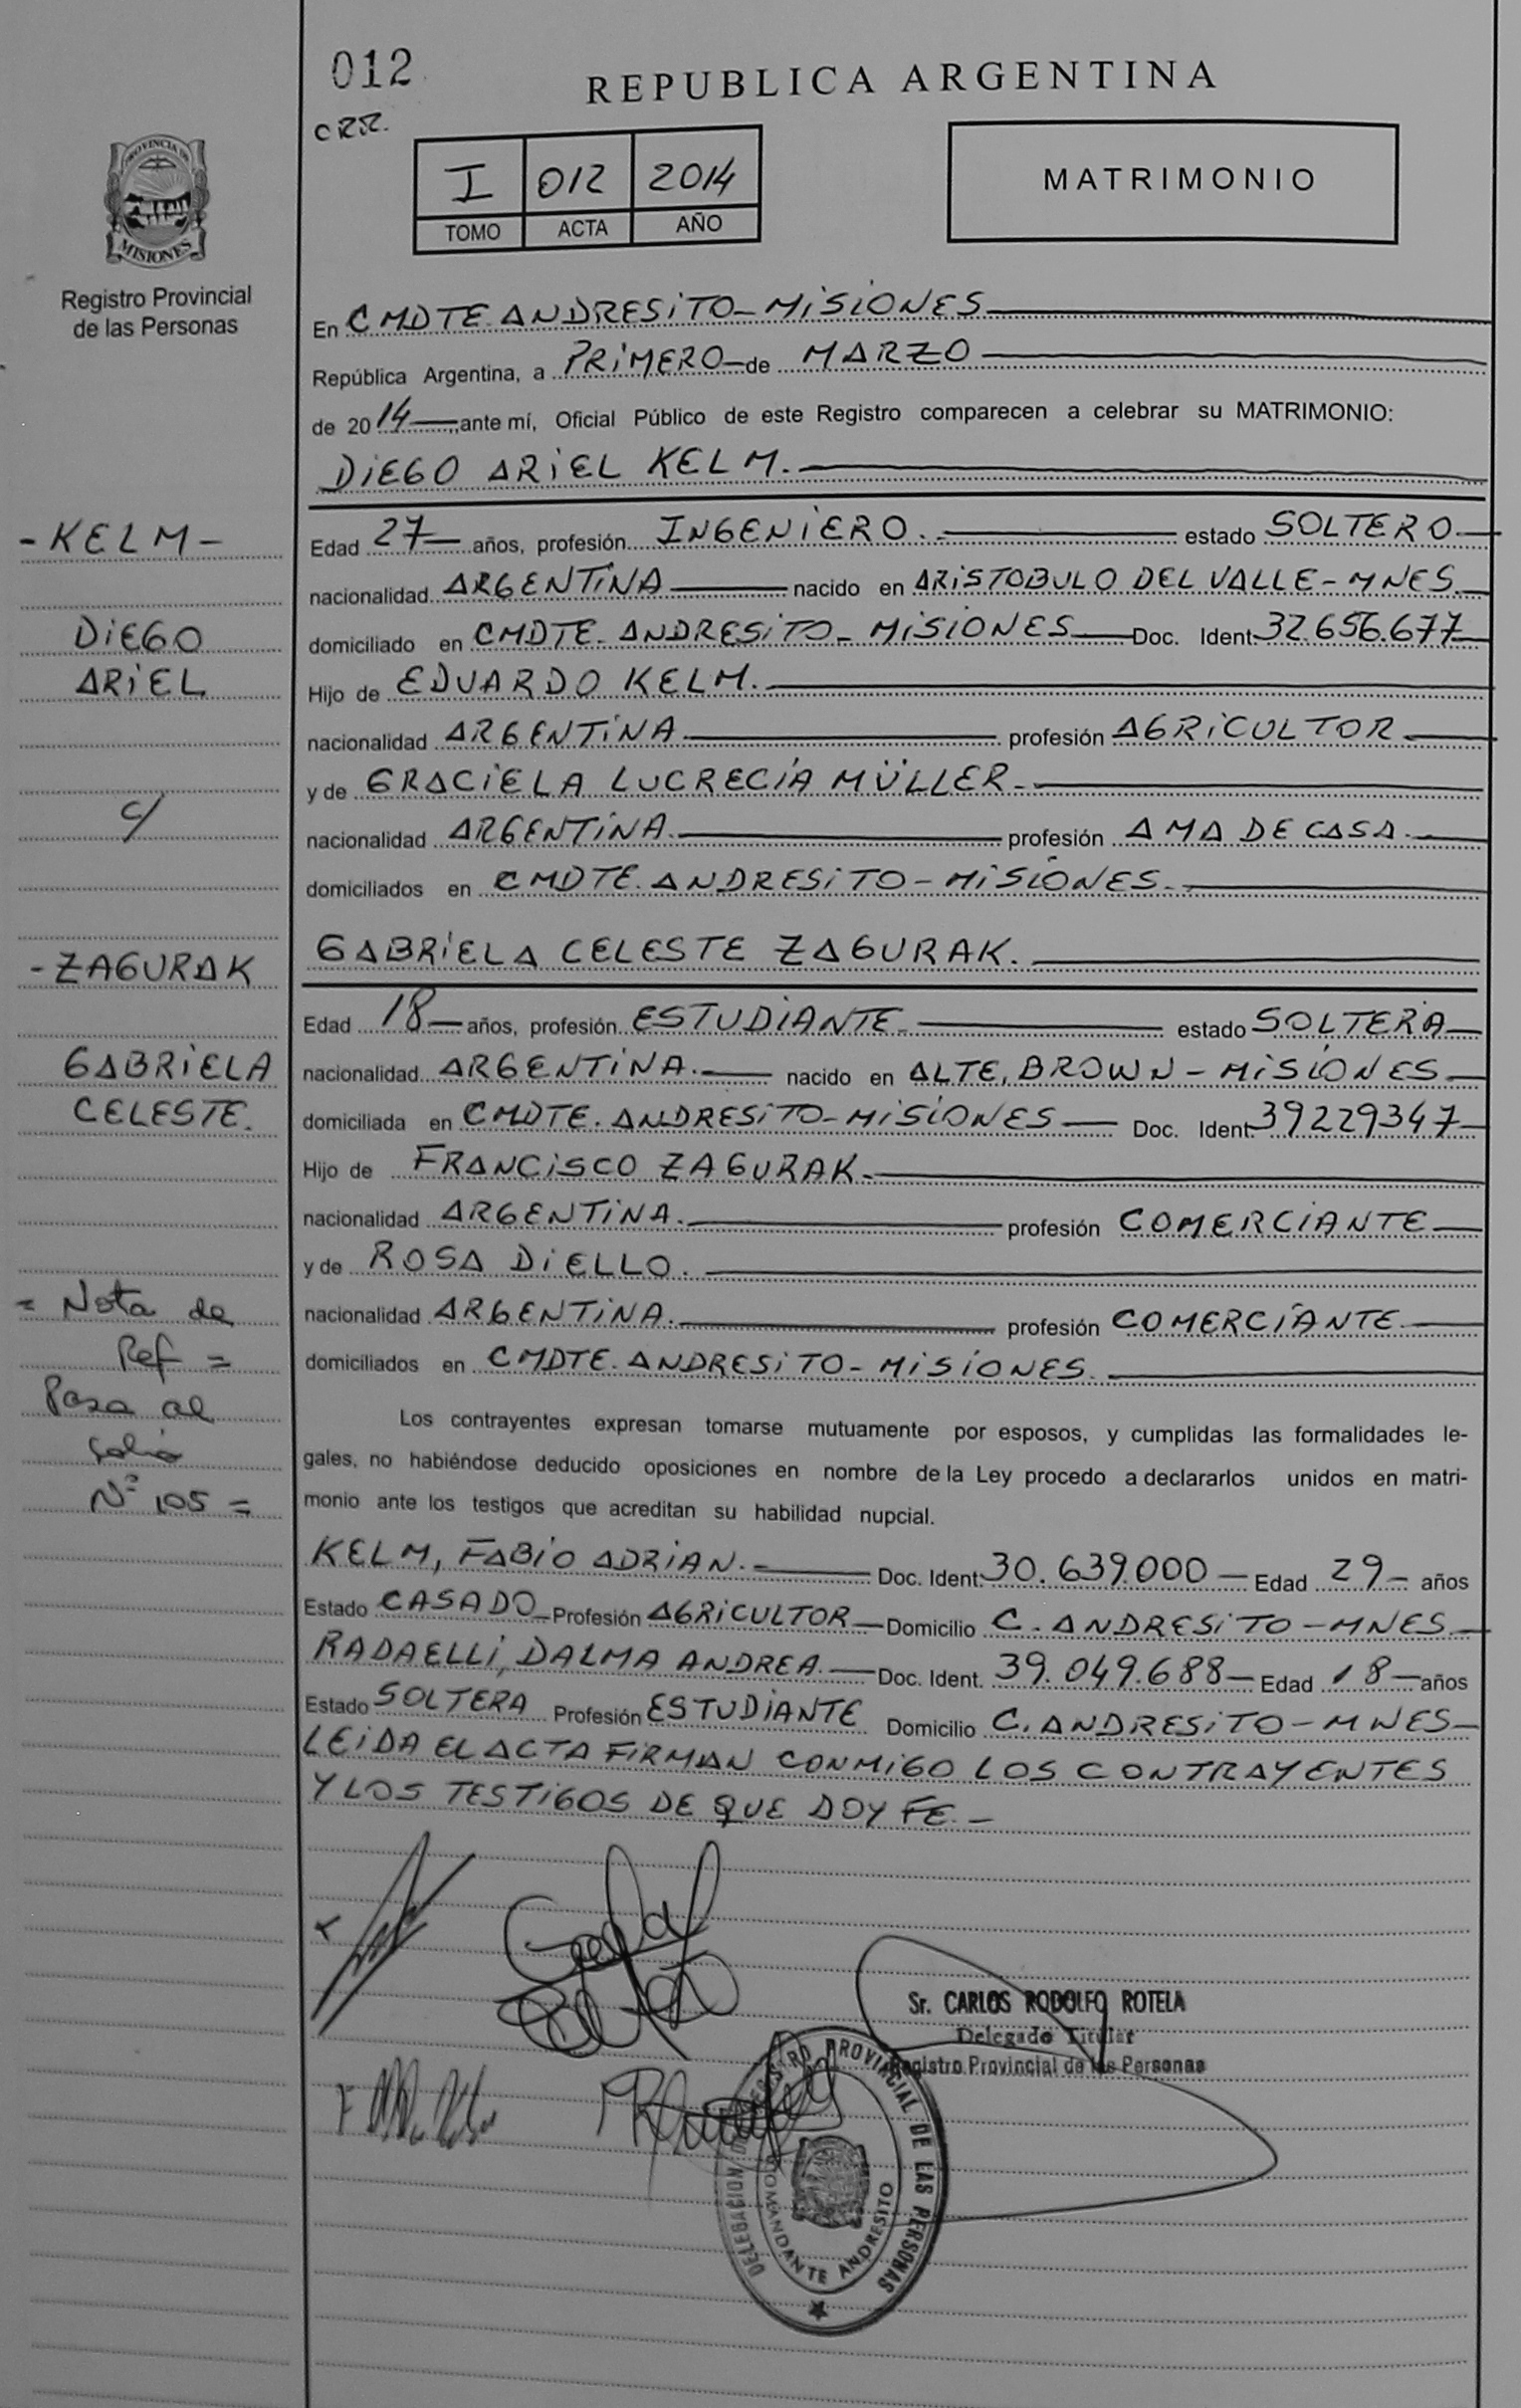 012
CRR.
REPUBLICA ARGENTINA
I 012 2014
TOMO ACTA AÑO
MATRIMONIO
PROVINCIA DE
MISIONES
Registro Provincial
de las Personas
En CMDTE ANDRESITO - MISIONES
República Argentina, a PRIMERO de MARZO
de 2014 ante mí, Oficial Público de este Registro comparecen a celebrar su MATRIMONIO:
DIEGO ARIEL KELM.
- KELM -
DIEGO
ARIEL
c/
- ZAGURAK
GABRIELA
CELESTE.
= Nota de
Ref =
Pasa al
folio
Nº 105 =
Edad 27 años, profesión INGENIERO. estado SOLTERO
nacionalidad ARGENTINA nacido en ARISTOBULO DEL VALLE - MNES.
domiciliado en CMDTE. ANDRESITO - MISIONES Doc. Ident. 32.656.677
Hijo de EDUARDO KELM.
nacionalidad ARGENTINA profesión AGRICULTOR
y de GRACIELA LUCRECIA MÜLLER
nacionalidad ARGENTINA. profesión AMA DE CASA.
domiciliados en CMDTE. ANDRESITO - MISIONES.
GABRIELA CELESTE ZAGURAK.
Edad 18 años, profesión ESTUDIANTE estado SOLTERA
nacionalidad ARGENTINA. nacido en ALTE. BROWN - MISIONES
domiciliada en CMDTE. ANDRESITO - MISIONES Doc. Ident. 39229347
Hijo de FRANCISCO ZAGURAK
nacionalidad ARGENTINA. profesión COMERCIANTE
y de ROSA DIELLO.
nacionalidad ARGENTINA. profesión COMERCIANTE
domiciliados en CMDTE. ANDRESITO - MISIONES.
Los contrayentes expresan tomarse mutuamente por esposos, y cumplidas las formalidades le-
gales, no habiéndose deducido oposiciones en nombre de la Ley procedo a declararlos unidos en matri-
monio ante los testigos que acreditan su habilidad nupcial.
KELM, FABIO ADRIAN. Doc. Ident. 30.639.000 Edad 29 años
Estado CASADO Profesión AGRICULTOR Domicilio C. ANDRESITO - MNES
RADAELLI, DALMA ANDREA. Doc. Ident. 39.049.688 Edad 18 años
Estado SOLTERA Profesión ESTUDIANTE Domicilio C. ANDRESITO - MNES
LEIDA EL ACTA FIRMAN CONMIGO LOS CONTRAYENTES
Y LOS TESTIGOS DE QUE DOY FE. -
Sr. CARLOS RODOLFO ROTELA
Delegado Titular
Registro Provincial de las Personas
DELEGACION DEL REGISTRO PROVINCIAL DE LAS PERSONAS
COMANDANTE ANDRESITO